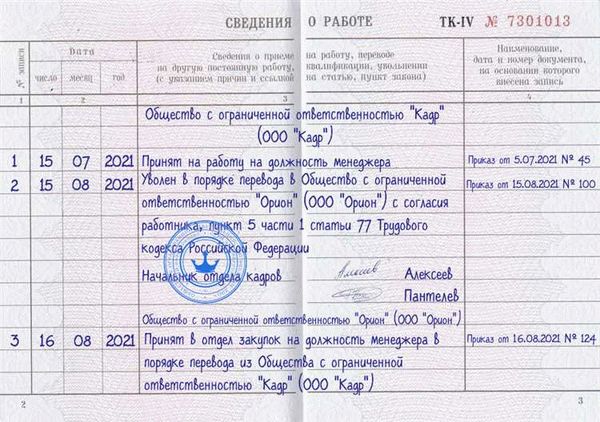 СВЕДЕНИЯ О РАБОТЕ ТК-IV № 7301013
№ записи
Дата
число месяц год
Сведения о приеме на работу, переводе
на другую постоянную работу, квалификации, увольнении
(с указанием причин и ссылкой на статью, пункт закона)
Наименование,
дата и номер документа,
на основании которого
внесена запись
1 2 3 4
Общество с ограниченной ответственностью "Кадр"
(ООО "Кадр")
1 15 07 2021 Принят на работу на должность менеджера Приказ от 5.07.2021 № 45
2 15 08 2021 Уволен в порядке перевода в Общество с ограниченной Приказ от 15.08.2021 № 100
ответственностью "Орион" (ООО "Орион") с согласия
работника, пункт 5 части 1 статьи 77 Трудового
кодекса Российской Федерации
Начальник отдела кадров Алексеев
Пантелев
Общество с ограниченной ответственностью "Орион" (ООО "Орион")
3 16 08 2021 Принят в отдел закупок на должность менеджера в Приказ от 16.08.2021 № 124
порядке перевода из Общества с ограниченной
ответственностью "Кадр" (ООО "Кадр")
2 3